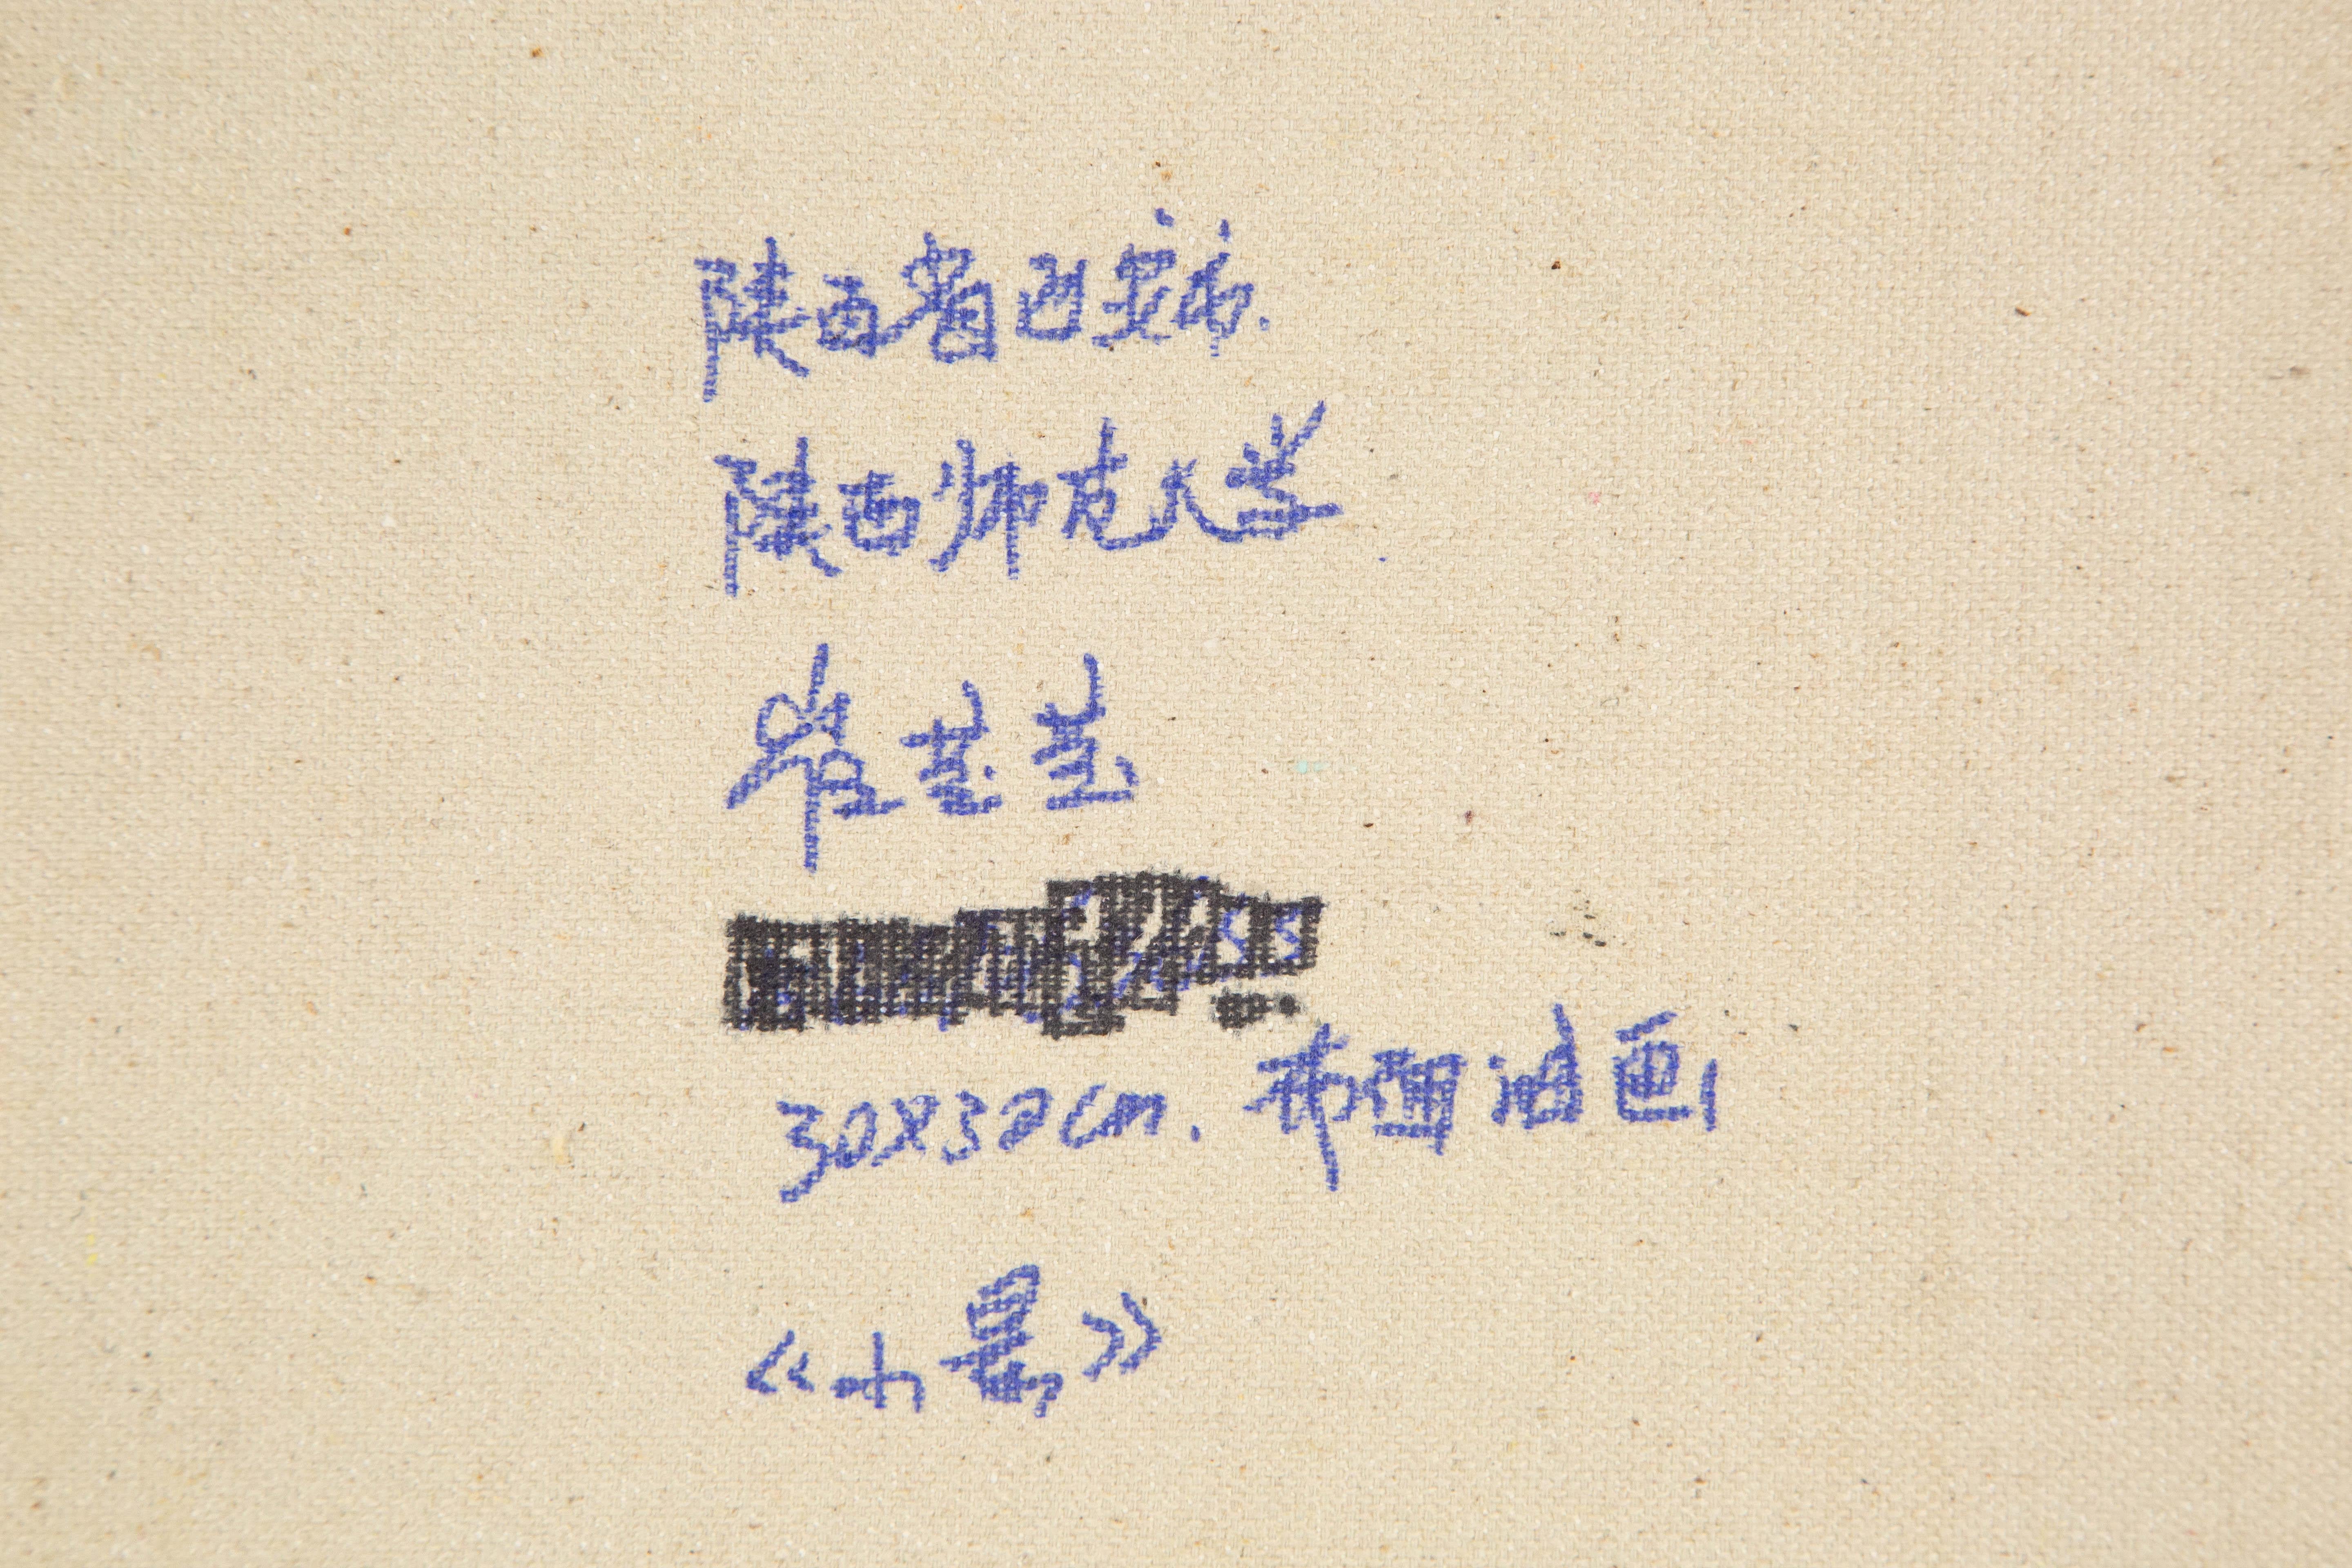 陕西省西安市.
陕西师范大学
崔
30X30cm. 布面油画
《小景》